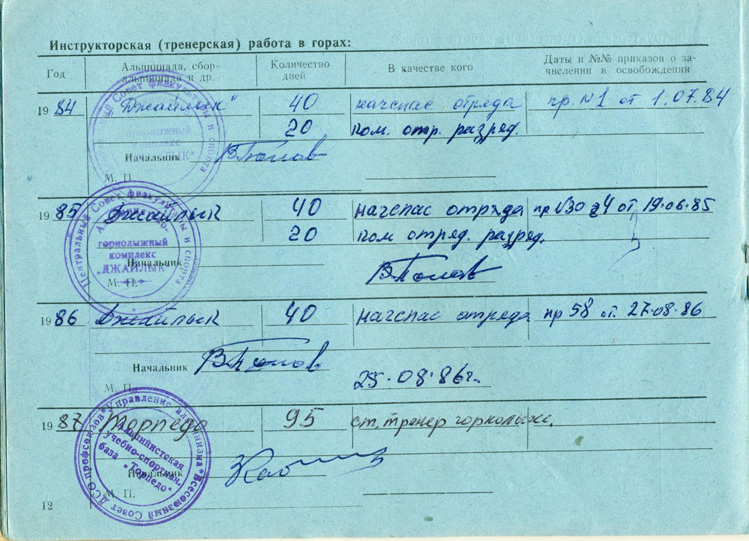 Инструкторская (тренерская) работа в горах:
Год Альпиниада, сбор- Количество В качестве кого Даты и №№ приказов о за-
альпиниада и др. дней числении и освобождении
1984 "Джайлык" 40 начспас отряда пр. N1 от 1.07.84
20 пом. отр. разряд.
Начальник ВПопов
М. П.
1985 Джайлык 40 начспас отряда от 19.06.85
20 пом отряд. разряд.
Центральный Совет физкультуры и спорта
горнолыжный
комплекс
"ДЖАЙЛЫК"
Начальник ВПопов
М. П.
1986 Джайлык 40 начспас отряда пр 58 от 27.08.86
Начальник ВПопов
М. П. 25.08.86г.
1987 Торпедо 95 ст. тренер горнолыжн.
Всесоюзный Совет ДСО профсоюзов Управление альпинизма
учебно-спортивная
база "Торпедо"
Начальник
М. П.
12